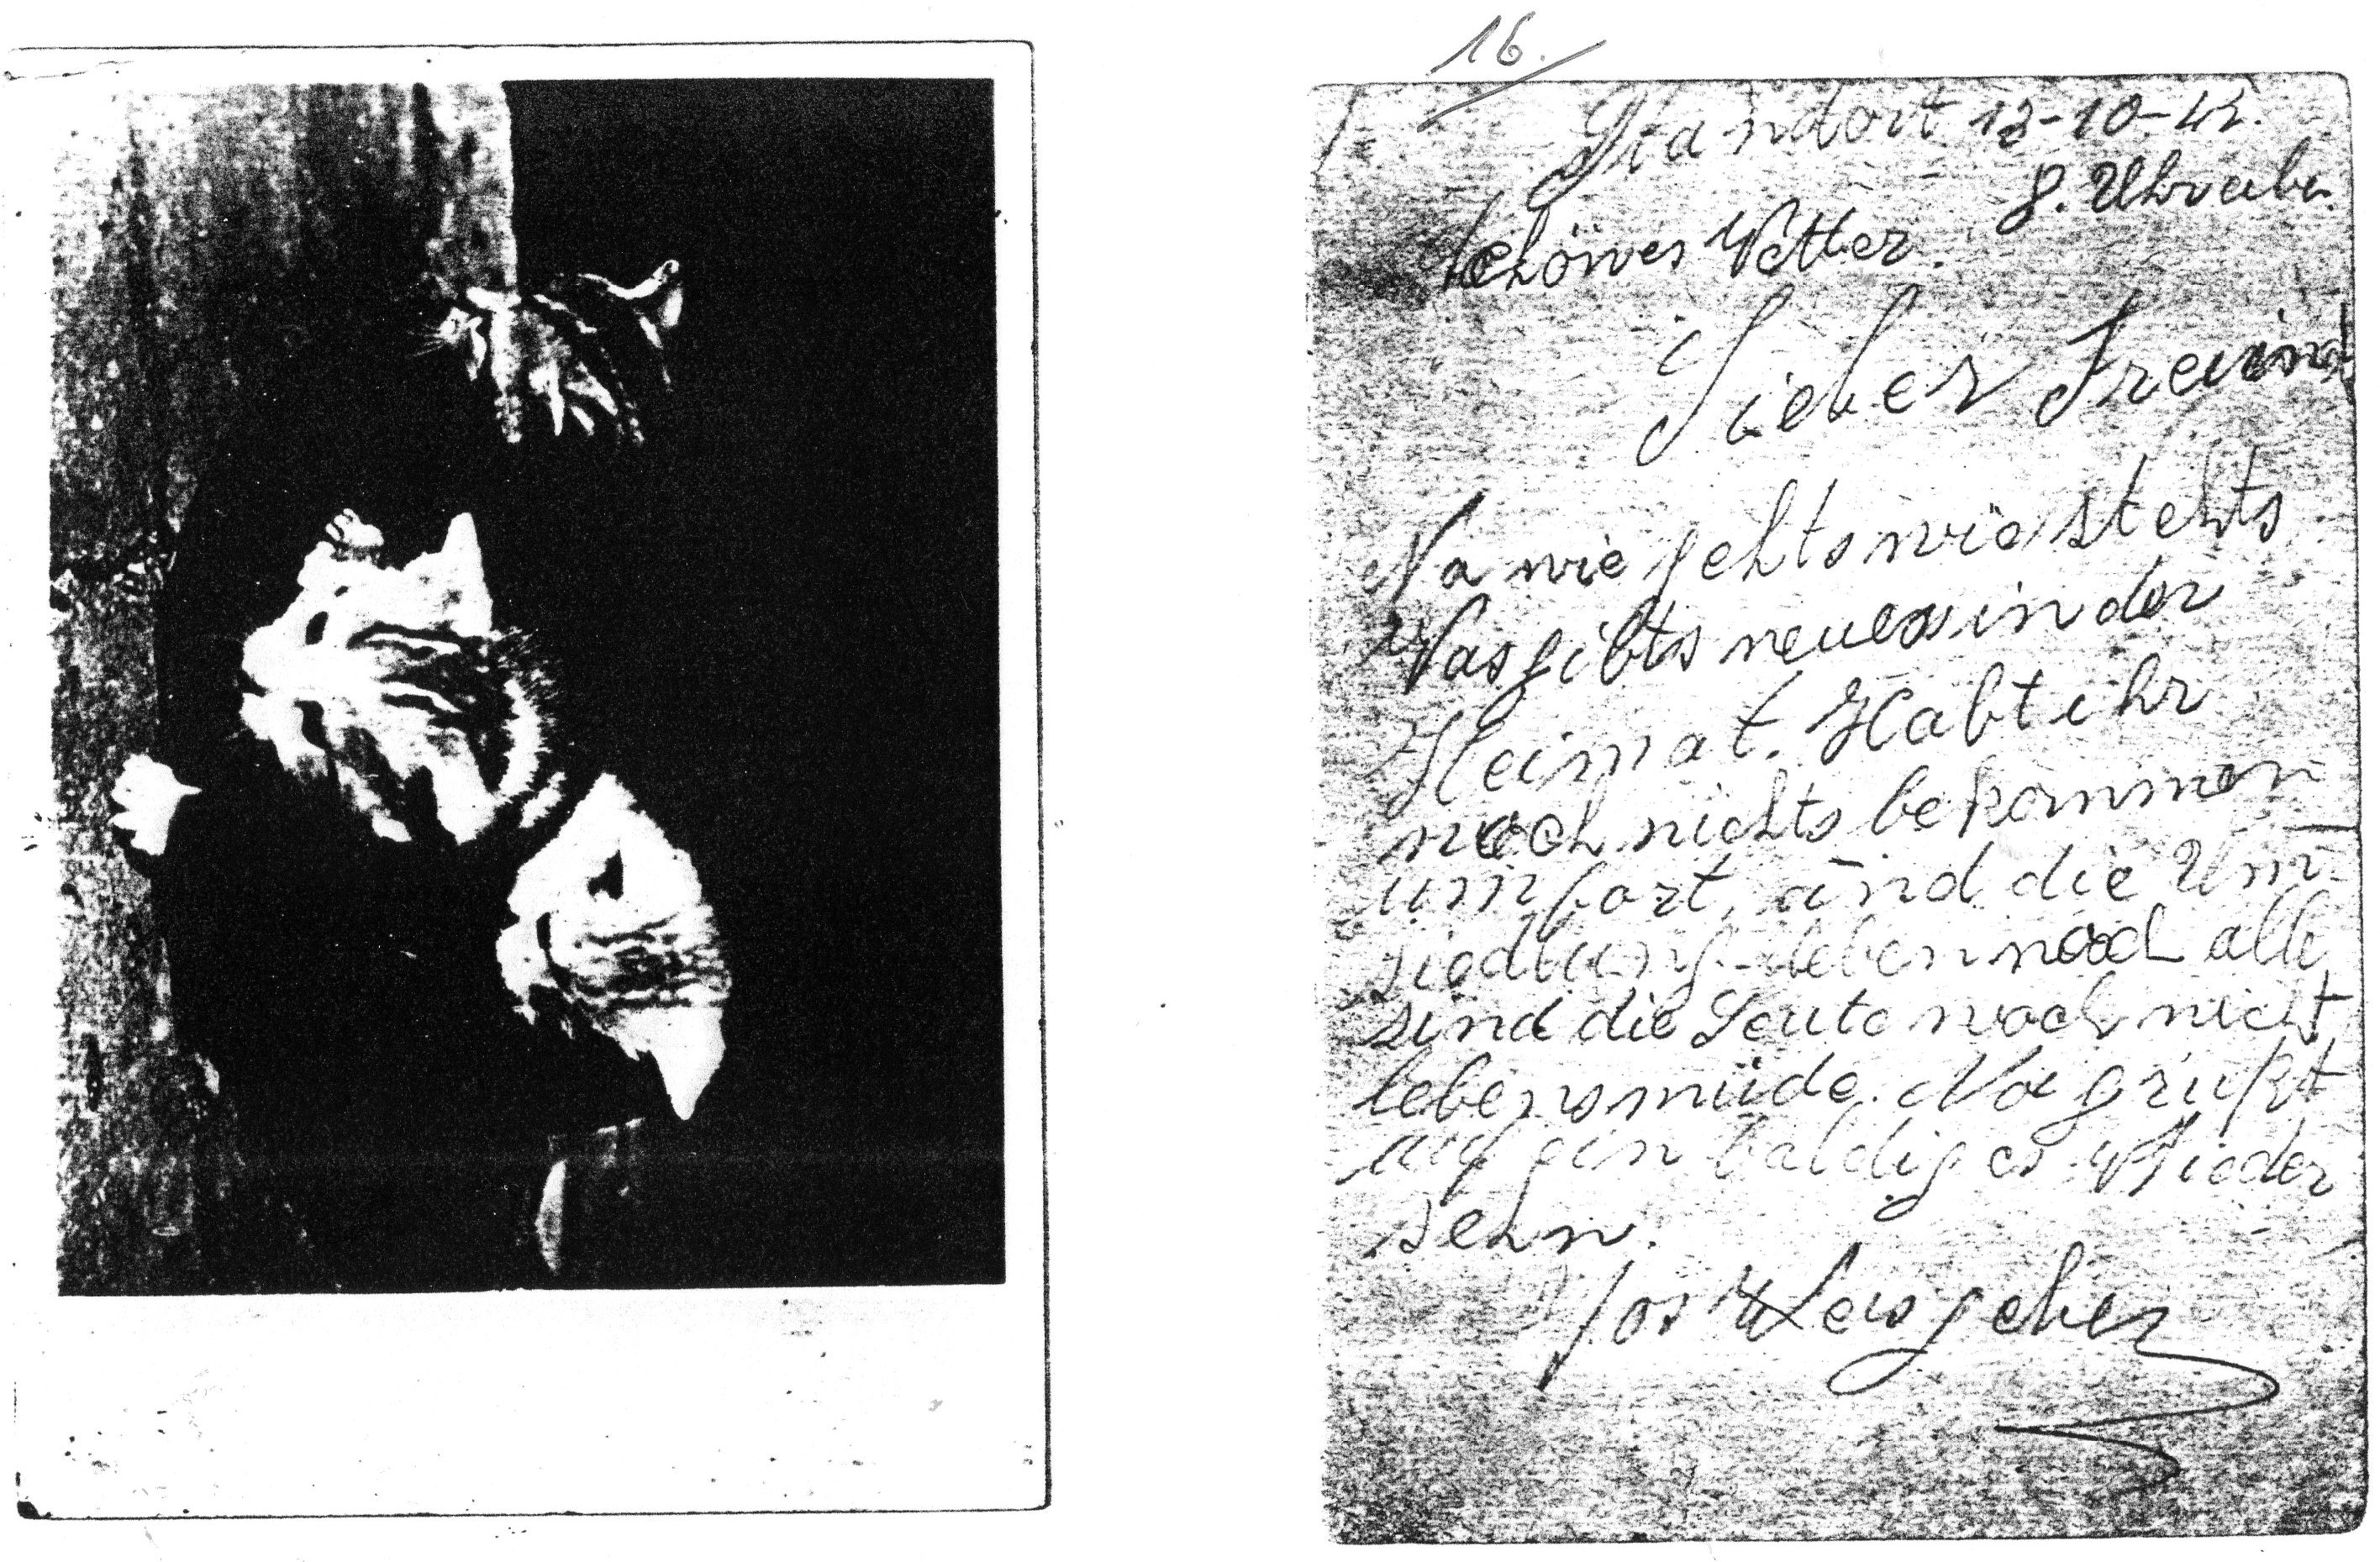 16.
Standort 12-10-42.
8. Uhr
schönes Wetter.
Lieber Freund
Na wie gehts wie stehts
Was gibts neues in der
Heimat. Habt ihr
noch nichts bekommen
und die Um-
siedlung leben noch alle
sind die Leute noch nicht
lebensmüde. Na grüßt
auf ein baldiges Wieder
sehn.
Jos